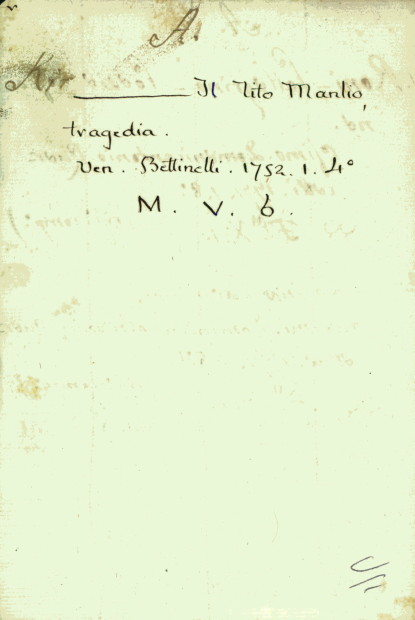 A.
——— Il Tito Manlio,
tragedia.
Ven. Bettinelli. 1752. 1. 4°
M. V. 6.